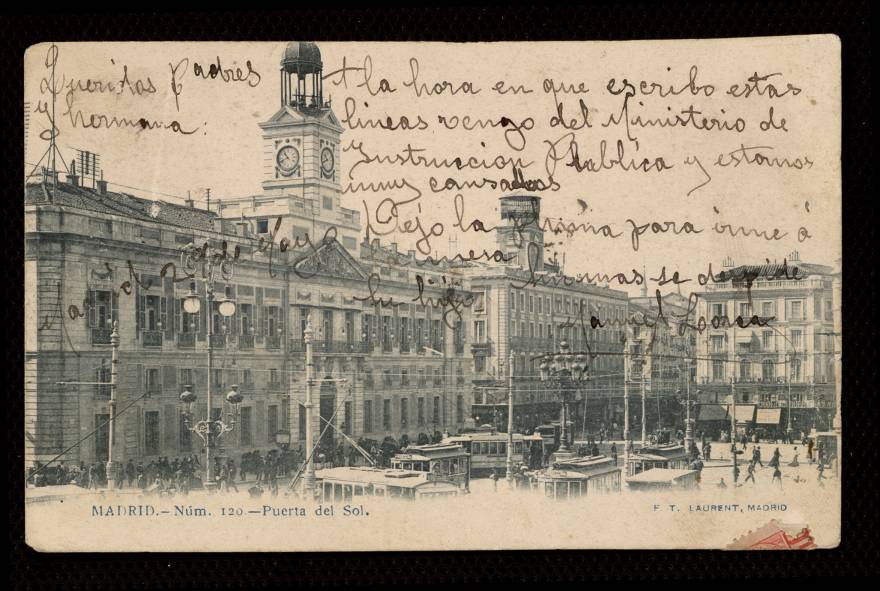 Queridos Padres
y hermana:
A la hora en que escribo estas
lineas vengo del Ministerio de
Ynstrucción Publica y estamos
muy cansados
Dejo la pluma para irme á
la mesa sin mas se despide
tu hijo Manuel Lorca
Madrid 2 de Mayo
MADRID.-Núm. 120.-Puerta del Sol.
F. T. LAURENT, MADRID